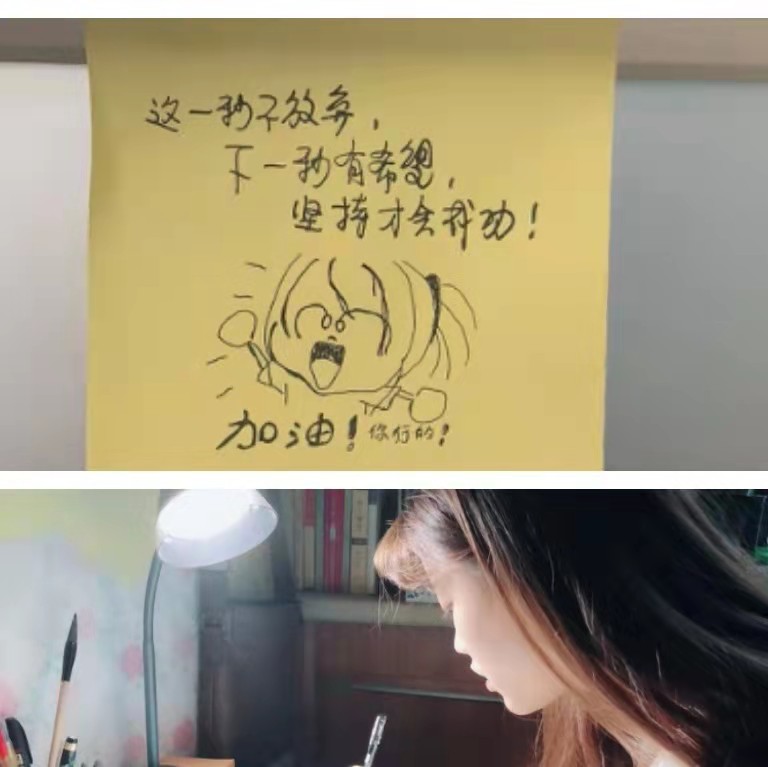 这一秒不放弃，
下一秒有希望，
坚持才会成功！
加油！你行的！